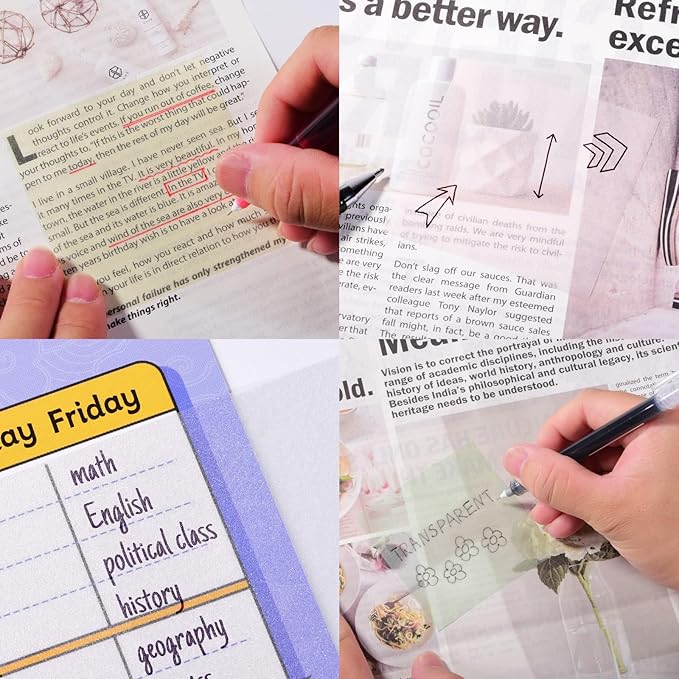 Look forward to your day and don't let negative
thoughts control it. Change how you interpret or
react to life's events. If you run out of coffee, change
your thoughts to, "If this is the worst thing that could hap-
pen to me today, then the rest of my day will be great."
live in a small village. I have never seen sea. But I se
it many times in the TV. It is very beautiful. In my ho
down, the water in the river is a little yellow and the
small. But the sea is different. In the TV
of the sea and its water is blue. It is ama
s voice and wind of the sea are also very
ten years birthday wish is to have a look a
you feel, how you react and how much
n your life is in direct relation to how you
personal failure has only strengthened my
make things right.
s a better way.
Refr
exce
COCOOIL
nts orga-
previousl
ilians have
air strikes,
something
are very
the risk
erate, ev-
ervatory
of civilian deaths from the
bombing raids. We are very mindful
of trying to mitigate the risk to civil-
ians.
Don't slag off our sauces. That was
the clear message from Guardian
readers last week after my esteemed
colleague Tony Naylor suggested
that reports of a brown sauce sales
fall might, in fact, be a good
The result
ay Friday
math
English
political class
history
geography
Vision is to correct the portrayal of
range of academic disciplines, including the
history of ideas, world history, anthropology and culture.
Besides India's philosophical and cultural legacy, its scienti
heritage needs to be understood.
old.
ginalized the term
TRANSPARENT